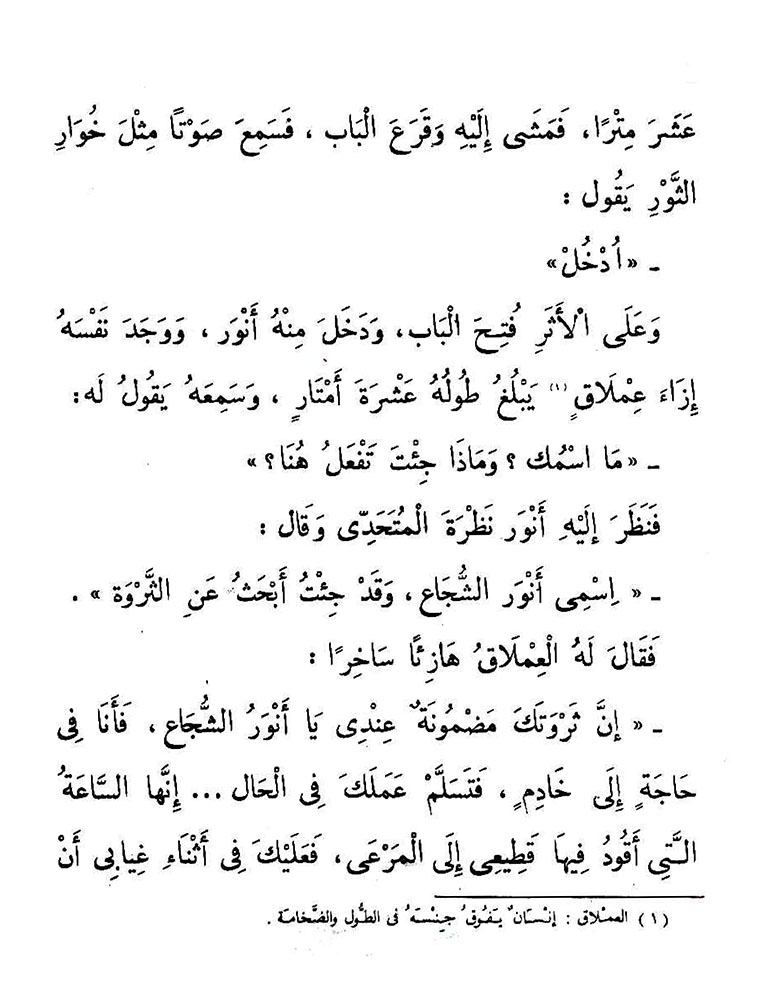 عَشَرَ مِتْرًا، فَمَشَى إِلَيْهِ وَقَرَعَ الْبَاب ، فَسَمِعَ صَوْتًا مِثْلَ خُوَارِ
الثَّوْرِ يَقُول :
ـ «اُدْخُلْ»
وَعَلَى الْأَثَرِ فُتِحَ الْبَاب، وَدَخَلَ مِنْهُ أَنْوَر ، وَوَجَدَ نَفْسَهُ
إِزَاءَ عِمْلَاقٍ (١) يَبْلُغُ طُولُهُ عَشْرَةَ أَمْتَارٍ ، وَسَمِعَهُ يَقُولُ لَه:
ـ «مَا اسْمُك ؟ وَمَاذَا جِئْتَ تَفْعَلُ هُنَا؟ »
فَنَظَرَ إِلَيْهِ أَنْوَر نَظْرَةَ الْمُتَحَدِّى وَقَال :
ـ « اِسْمِى أَنْوَر الشُّجَاع ، وَقَدْ جِئْتُ أَبْحَثُ عَنِ الثَّرْوَة » .
فَقَالَ لَهُ الْعِمْلَاقُ هَازِئًا سَاخِرًا :
ـ « إِنَّ ثَرْوَتَكَ مَضْمُونَةٌ عِنْدِى يَا أَنْوَرُ الشُّجَاع ، فَأَنَا فِى
حَاجَةٍ إِلَى خَادِمٍ ، فَتَسَلَّمْ عَمَلَكَ فِى الْحَال ... إِنَّها السَّاعَةُ
الَّتِى أَقُودُ فِيهَا قَطِيعِى إِلَى الْمَرْعَى، فَعَلَيْكَ فِى أَثْنَاءِ غِيَابِى أَنْ
(١) العملاق : إنْسَانٌ يَفُوقُ جِنْسَهُ فى الطُّول والضَّخامة .